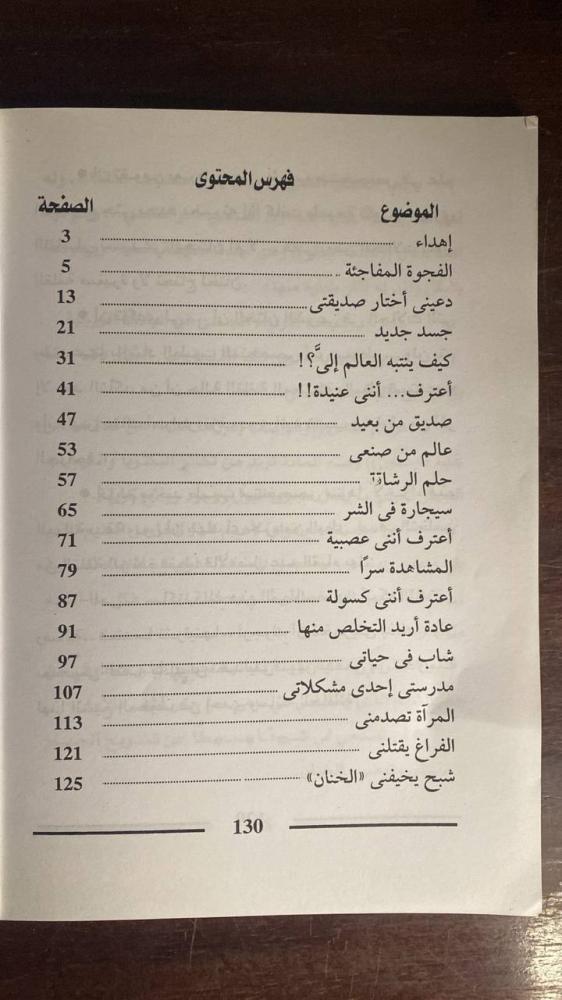 فهرس المحتوى
الموضوع الصفحة
إهداء 3
الفجوة المفاجئة 5
دعينى أختار صديقتى 13
جسد جديد 21
كيف ينتبه العالم إلىَّ؟! 31
أعترف... أننى عنيدة!! 41
صديق من بعيد 47
عالم من صنعى 53
حلم الرشاقة 57
سيجارة فى الشر 65
أعترف أننى عصبية 71
المشاهدة سرًا 79
أعترف أننى كسولة 87
عادة أريد التخلص منها 91
شاب فى حياتى 97
مدرستى إحدى مشكلاتى 107
المرآة تصدمنى 113
الفراغ يقتلنى 121
شبح يخيفنى «الختان» 125
130